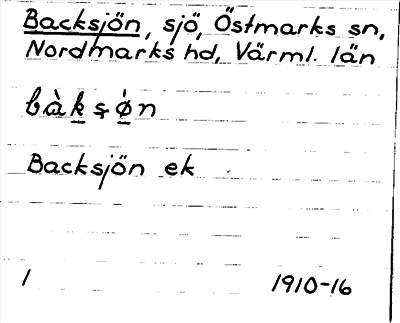 Backsjön, sjö, Östmarks sn,
Nordmarks hd, Värml. län
bàk̲ʂø̲̀n
Backsjön ek
1 1910-16